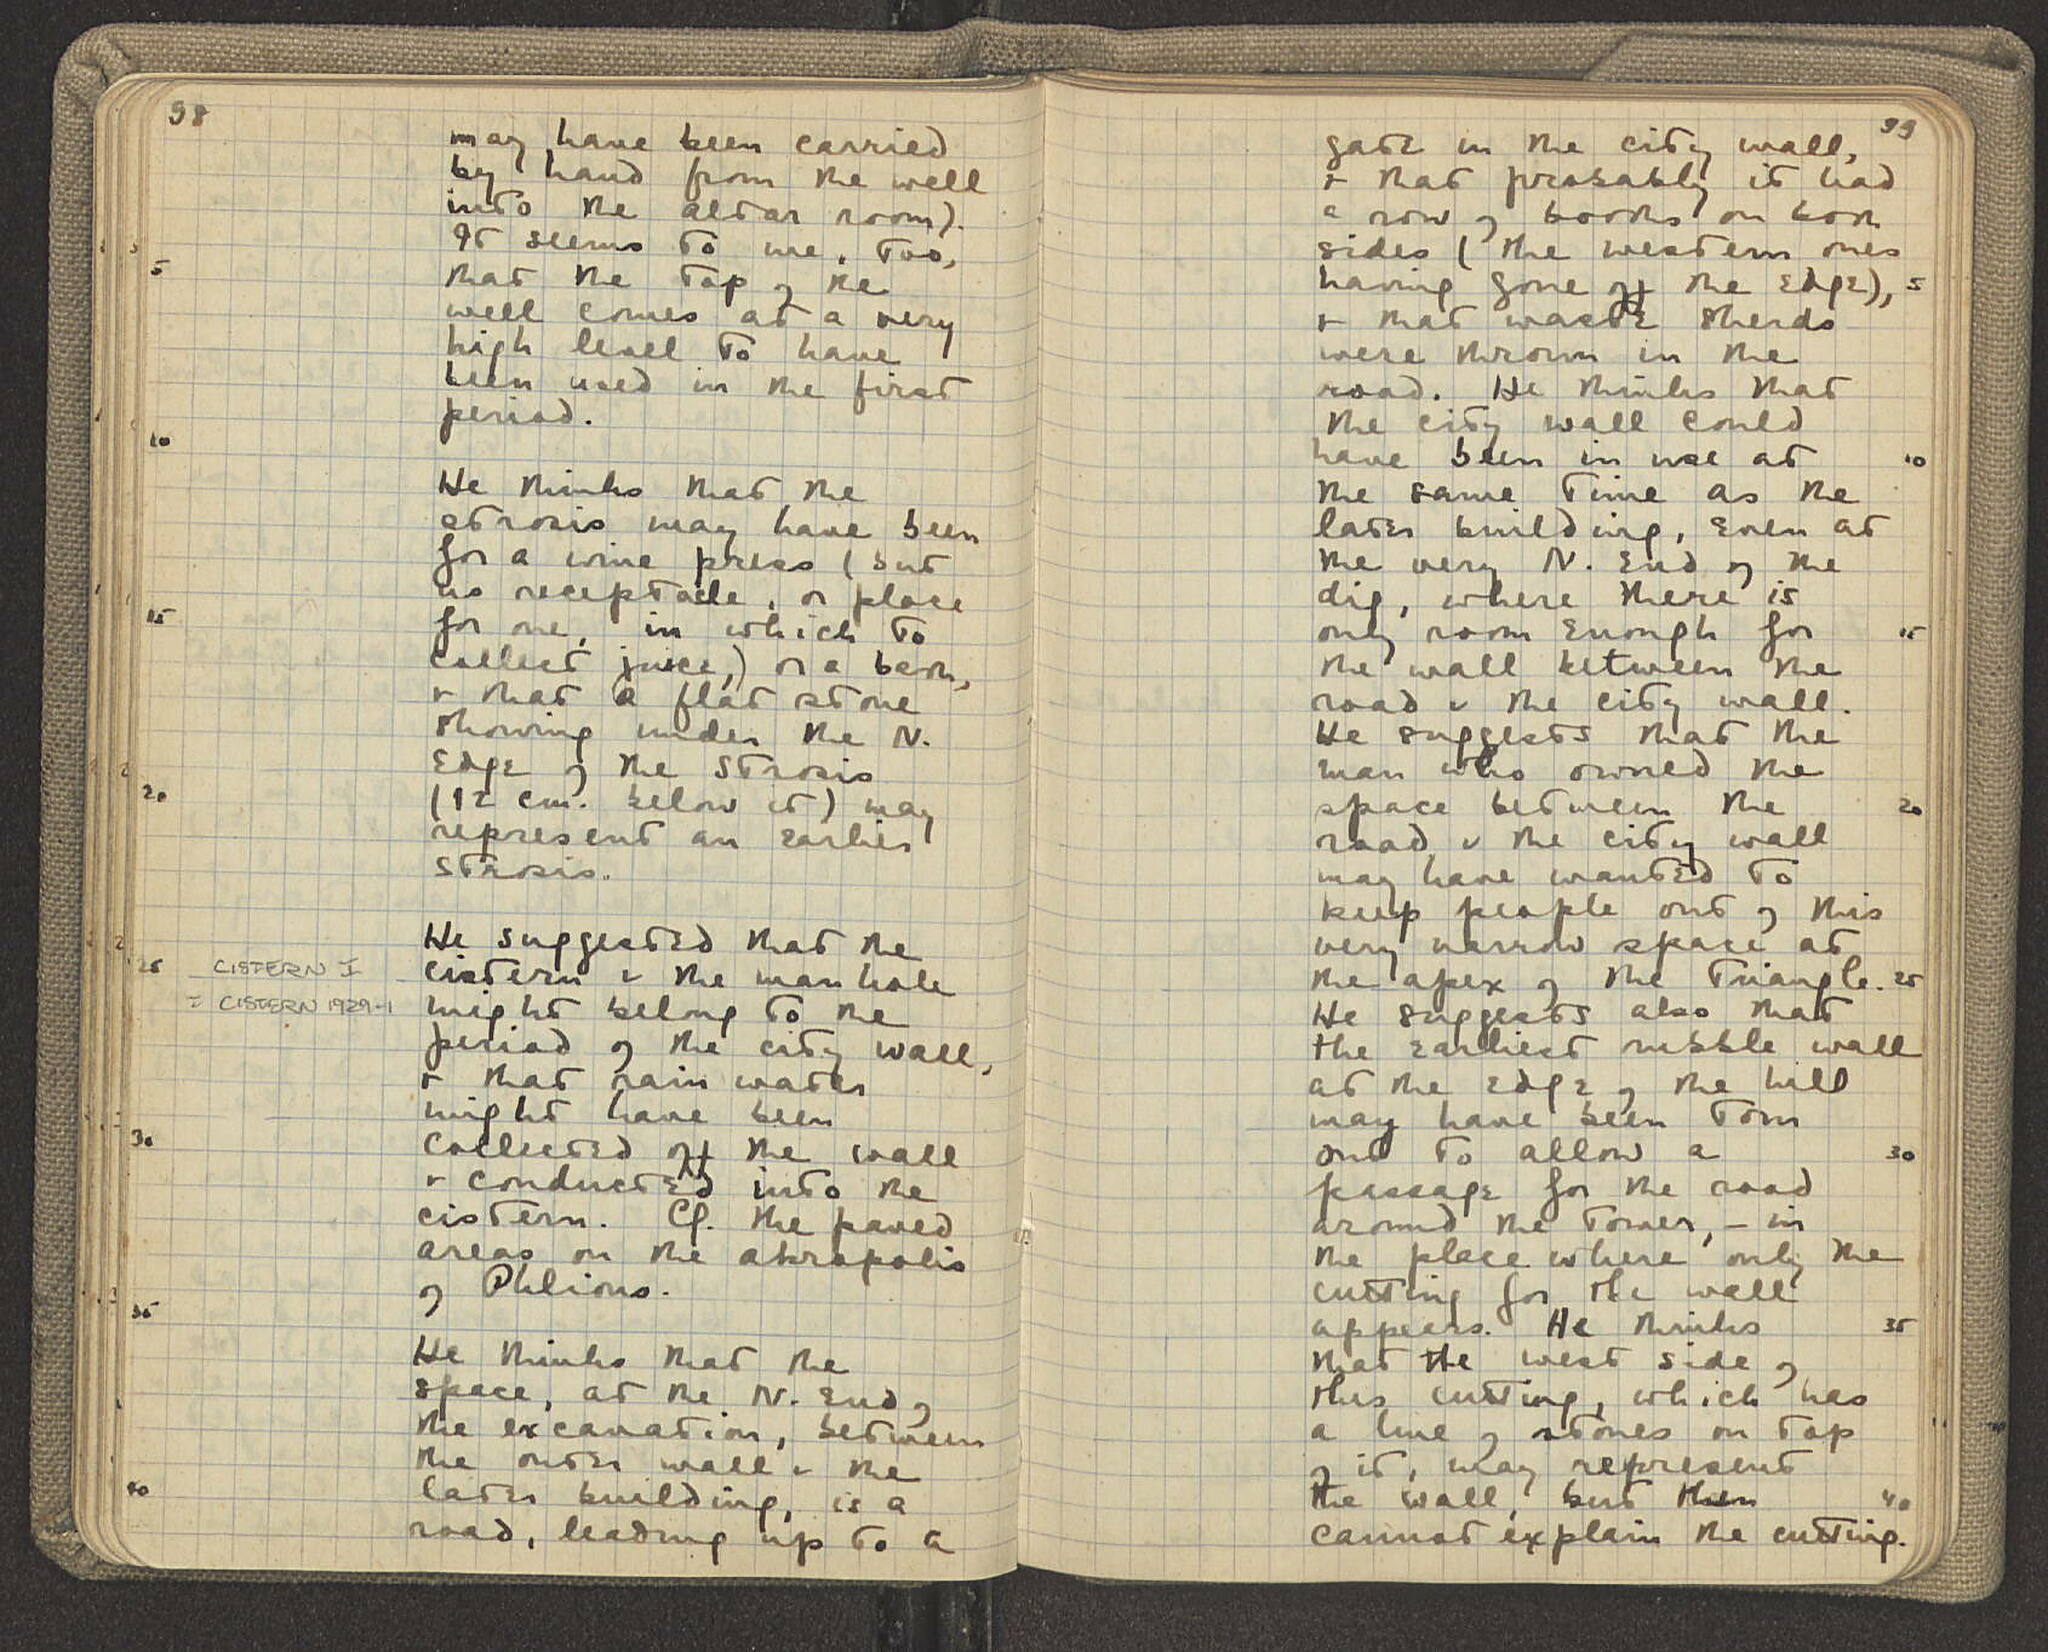 98
may have been carried
by hand from the well
into the altar room).
It seems to me, too,
5
that the top of the
well comes at a very
high level to have
been used in the first
period.
10
He thinks that the
strosis may have been
for a wine press (but
no receptacle, or place
15
for one, in which to
collect juice,) or a bath,
+ that a flat stone
showing under the N.
Edge of the Strosis
20
(12 cm. below it) may
represent an earlier
Strosis.
He suggested that the
25 CISTERN I cistern + the manhole
= CISTERN 1929-1 might belong to the
period of the city wall,
+ that rain water
might have been
30
collected off the wall
+ conducted into the
cistern. Cf. the paved
areas on the akropolis
of Phlious.
35
He thinks that the
space, at the N. End of
the excavation, between
the outer wall + the
40
later building, is a
road, leading up to a
99
gate in the city wall,
+ that probably it had
a row of booths on both
sides (the western ones
having gone off the edge), 5
+ that waste sherds
were thrown in the
road. He thinks that
the city wall could
have been in use at 10
the same time as the
later building, even at
the very N. End of the
dig, where there is
only room enough for 15
the wall between the
road + the city wall.
He suggests that the
man who owned the
space between the 20
road + the city wall
may have wanted to
keep people out of this
very narrow space at
the apex of the Triangle. 25
He suggests also that
the earliest rubble wall
at the edge of the hill
may have been torn
out to allow a 30
passage for the road
around the tower, - in
the place where only the
cutting for the wall
appears. He thinks 35
that the west side of
this cutting, which has
a line of stones on top
of it, may represent
the wall, but then 40
cannot explain the cutting.